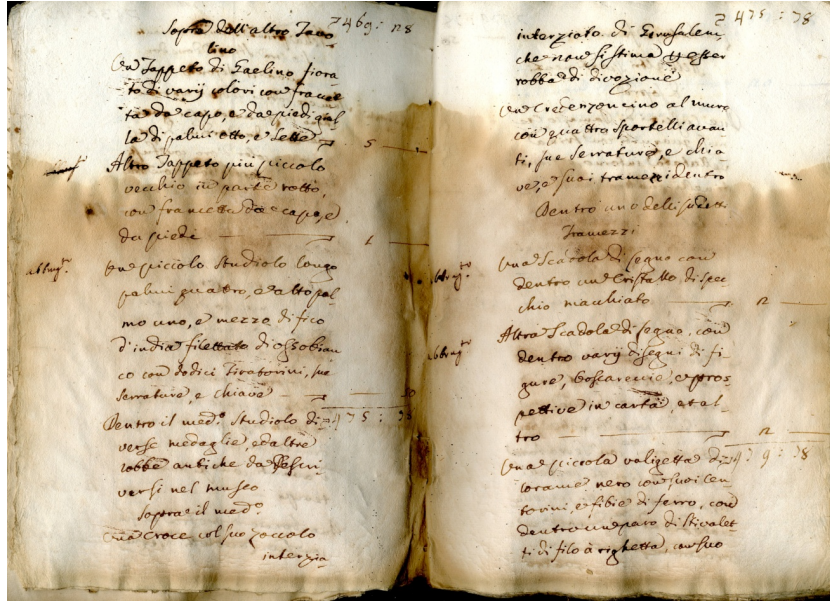 Sopra dell'altro Tavo
lino
Un Tappeto di Gaelino fiora
to di varij colori con france
ta da capo, e da piedi gial
la di palmi otto, e sette 5
Altro Tappeto più piccolo
vecchio in parte rotto,
con francetta da capo, e
da piedi 1
Un piccolo studiolo longo
palmi quattro, ed alto pal
mo uno, e mezzo di fico
d'india filettato di osso bian
co con dodici Tiratorini, sue
serrature, e chiave
Dentro il med.º studiolo di
verse medaglie, ed altre
robbe antiche da descri
versi nel museo
sopra il med.º
Una Croce col suo zoccolo
interzia
475 : 78
interziato di Gerusalem,
che non si stima per esser
robba di divozione
Un Credenzoncino al muro
con quattro sportelli avan
ti, sue serrature, e chia
ve, e suoi tramezzi dentro
Dentro uno delli sudetti
Tramezzi
Una Scatola di legno con
dentro un Cristallo di spec
chio macchiato 2
Altra Scatola di legno, con
dentro varij disegni di fi
gure, boscareccie, e pros
pettive in carta, et al
tro 2
Una piccola valigetta di
corame nero con suoi cen
torini, e fibie di ferro, con
dentro un paro di stivalet
ti di filo à righetta, con suo